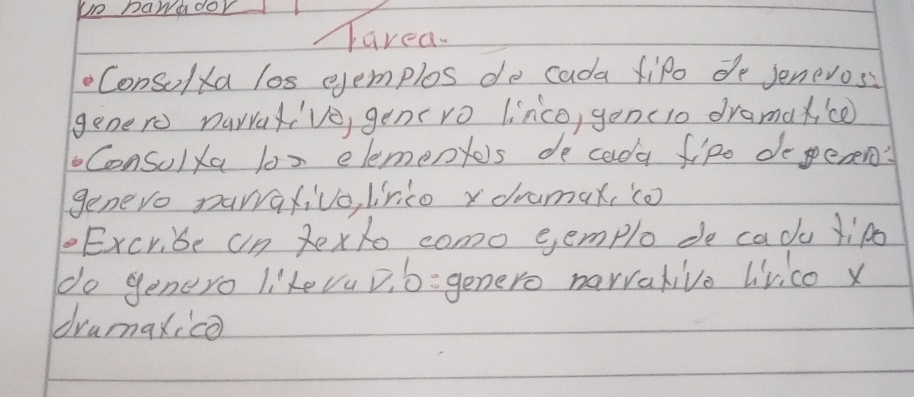 un narrador
Tarea.
•Consulta los ejemplos de cada tipo de jeneros:
genero narrativo, genero lirico, genero dramatico
•Consulta los elementos de cada tipo de genero:
genero narrativo, lirico y dramatico
•Excribe un texto como ejemplo de cada tipo
de genero literario: genero narrativo lirico y
dramatico